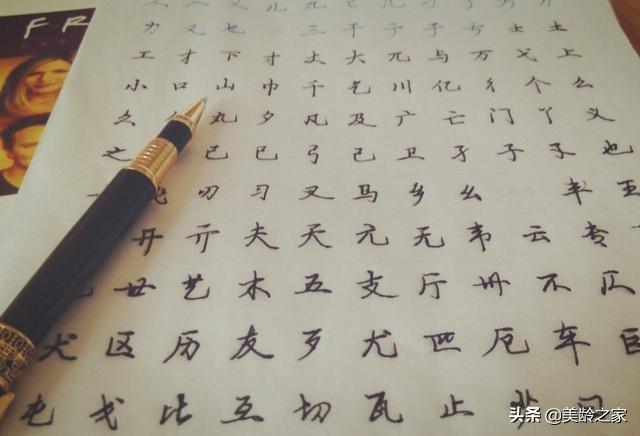 FR
力 又 三 干 于 亍 亏 士 土
工 才 下 寸 丈 大 兀 与 万 弋 上
小 口 山 巾 千 乞 川 亿 彳 个 么
久 丸 夕 凡 及 广 亡 门 丫 义
之 已 巳 弓 己 卫 孑 子 孓 也
飞 刃 习 叉 马 乡 幺 丰 王
开 亓 夫 天 元 无 韦 云 专
世 艺 木 五 支 厅 卅 不
犬 区 历 友 歹 尤 匹 厄 车 巨
屯 戈 比 互 切 瓦 止
头条 @美龄之家